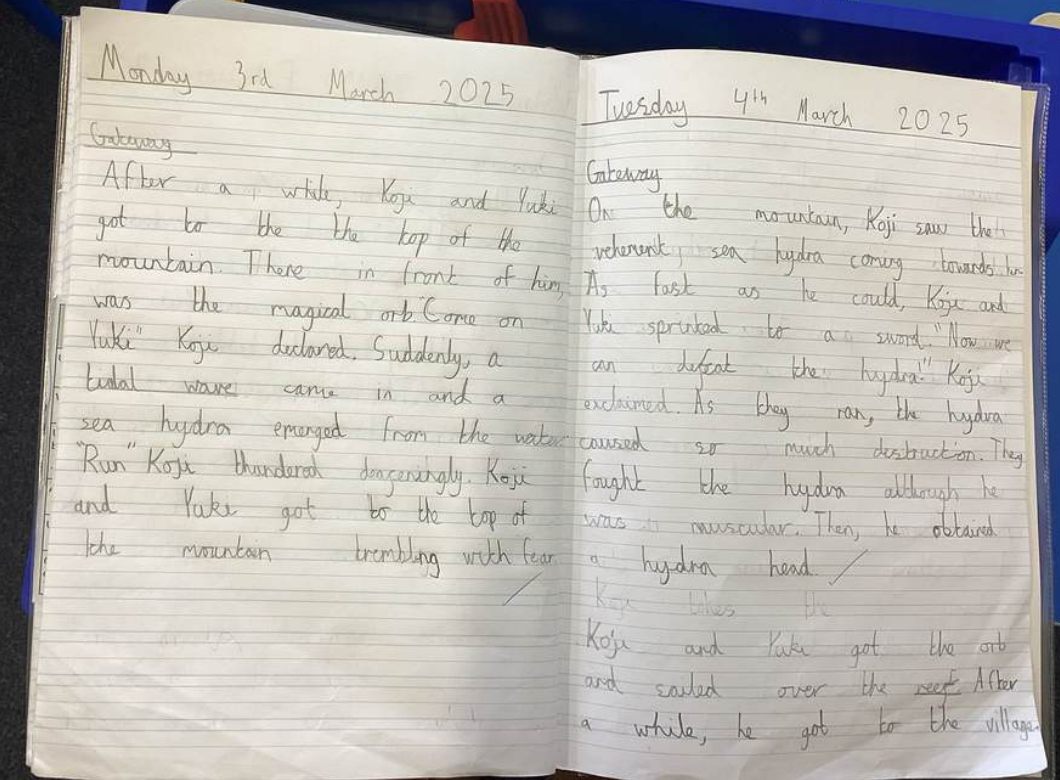 Monday 3rd March 2025
Gateway
After a while, Koji and Yuki
got to the the top of the
mountain. There in front of him,
was the magical orb. "Come on
Yuki" Koji declared. Suddenly, a
tidal wave came in and a
sea hydra emerged from the water
"Run" Koji thundered deageningly. Koji
and Yuki got to the top of
the mountain trembling with fear.
Tuesday 4th March 2025
Gateway
On the mountain, Koji saw the
vehement sea hydra coming towards
As fast as he could, Koji and
Yuki sprinted to a sword. "Now we
can defeat the hydra!" Koji
exclaimed. As they ran, the hydra
caused so much destruction. They
fought the hydra although he
was muscular. Then, he obtained
a hydra head.
Koji and Yuki got the orb
and sailed over the reef. After
a while, he got to the village.